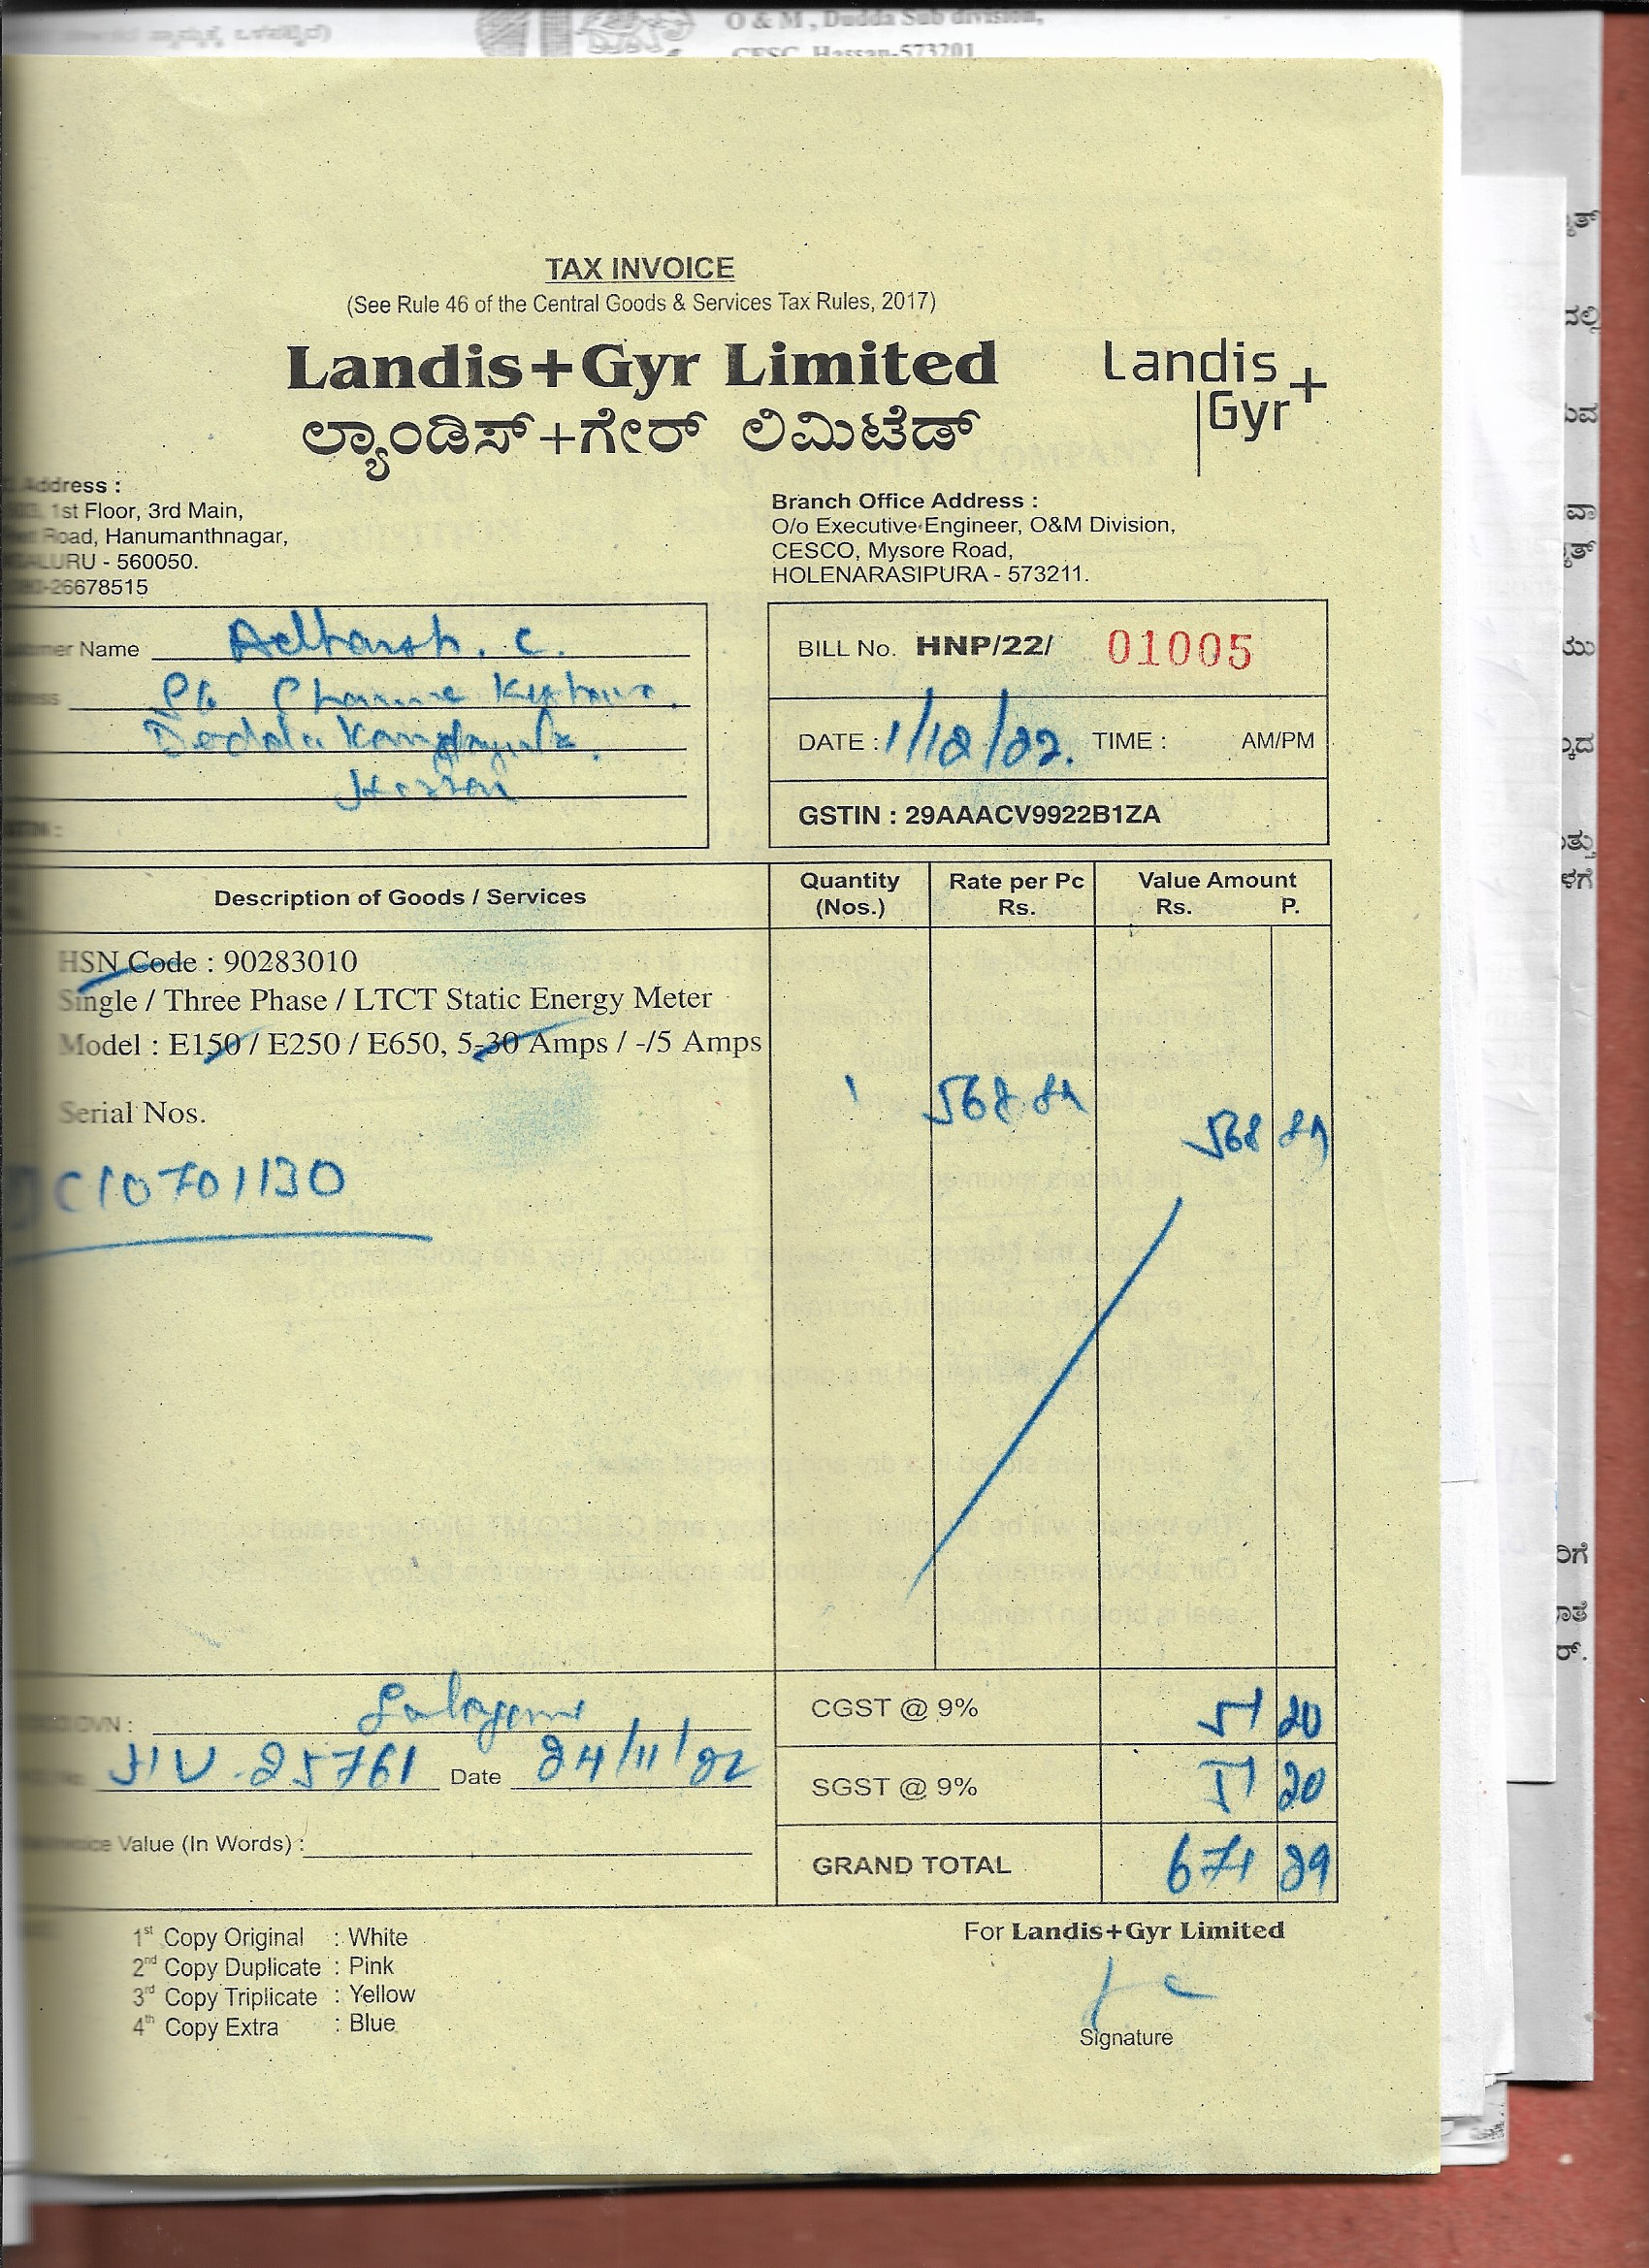 O & M , Dudda Sub division,
CESC, Hassan-573201
TAX INVOICE
(See Rule 46 of the Central Goods & Services Tax Rules, 2017)
Landis+Gyr Limited
ಲ್ಯಾಂಡಿಸ್+ಗೇರ್ ಲಿಮಿಟೆಡ್
Landis+
Gyr
Address :
1st Floor, 3rd Main,
Road, Hanumanthnagar,
LURU - 560050.
-26678515
Branch Office Address :
O/o Executive Engineer, O&M Division,
CESCO, Mysore Road,
HOLENARASIPURA - 573211.
Name Adharsh. C.
BILL No. HNP/22/ 01005
DATE : 1/12/22. TIME : AM/PM
GSTIN : 29AAACV9922B1ZA
Description of Goods / Services
Quantity (Nos.)
Rate per Pc Rs.
Value Amount Rs. P.
HSN Code : 90283010
Single / Three Phase / LTCT Static Energy Meter
Model : E150 / E250 / E650, 5-30 Amps / -/5 Amps
Serial Nos.
1 568.89 568 89
C10701130
CGST @ 9% 51 20
25761 Date 24/11/22
SGST @ 9% 51 20
Value (In Words) :
GRAND TOTAL 671 29
1st Copy Original : White
2nd Copy Duplicate : Pink
3rd Copy Triplicate : Yellow
4th Copy Extra : Blue
For Landis+Gyr Limited
Signature